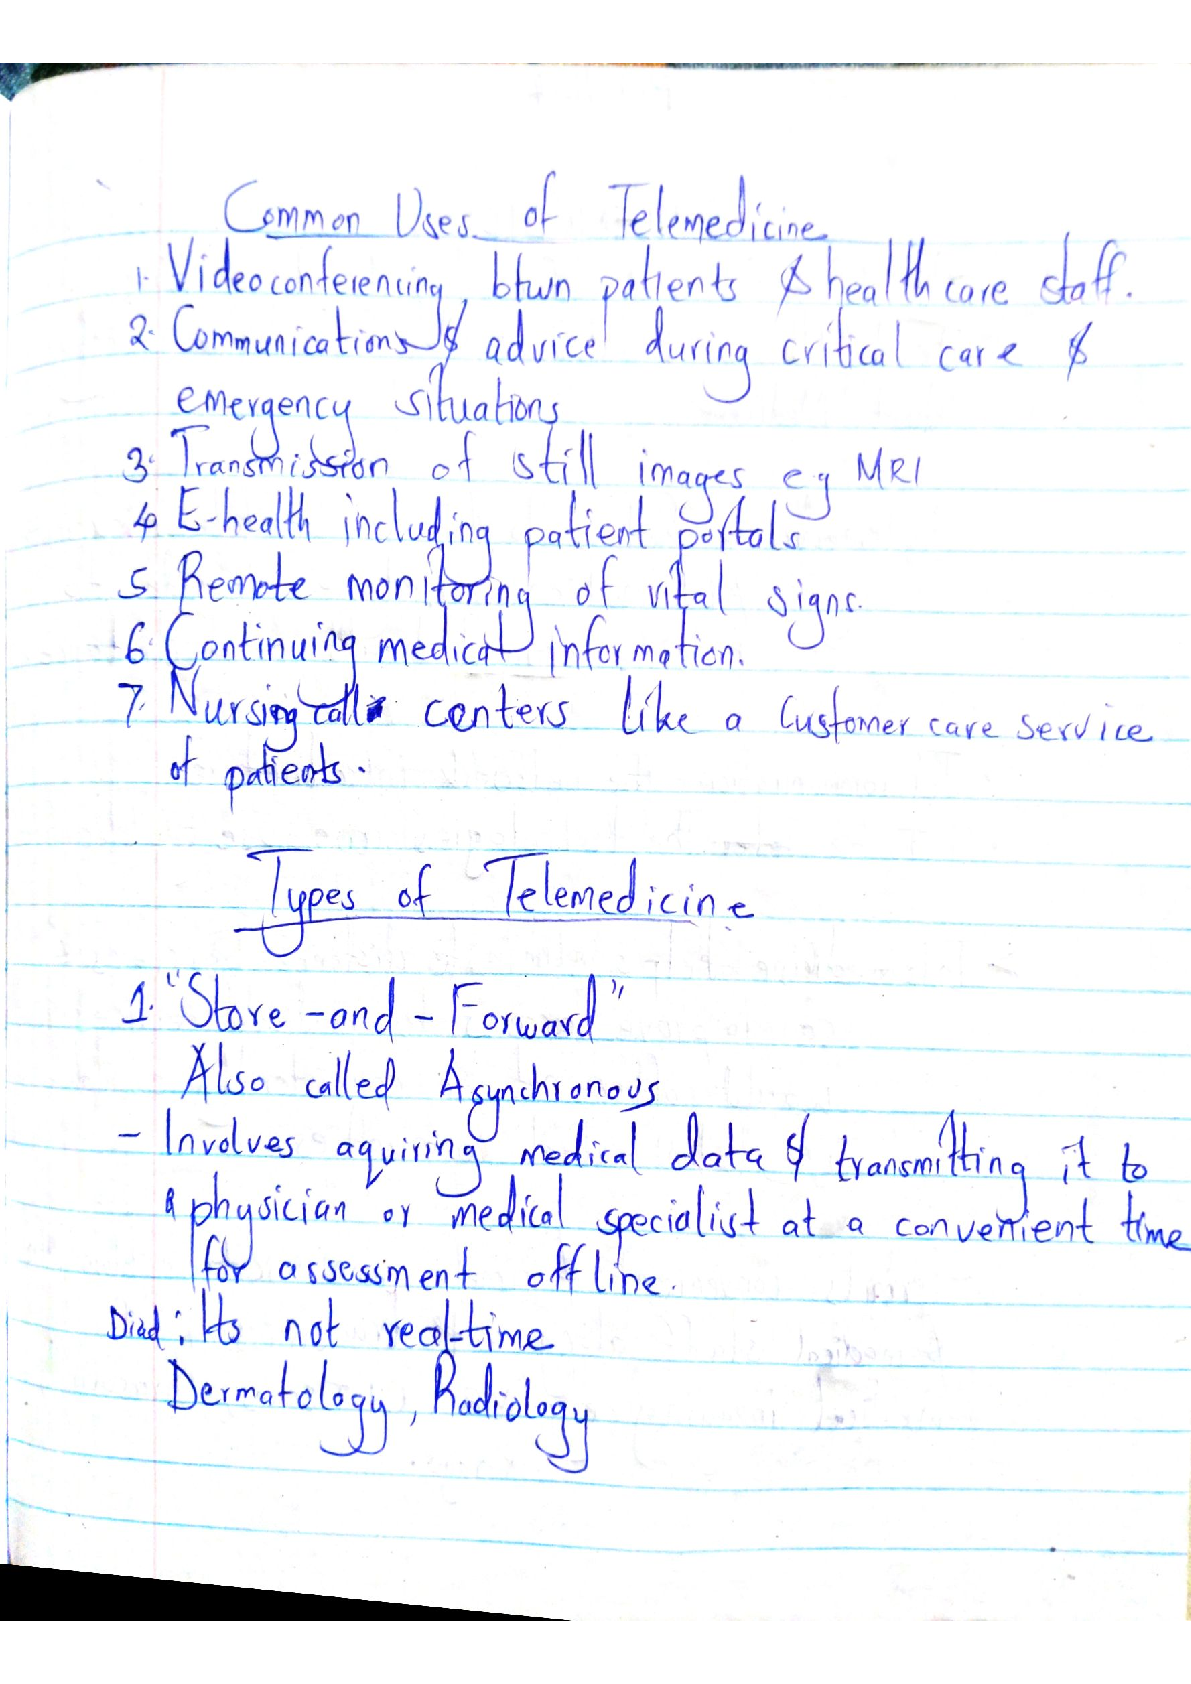 Common Uses of Telemedicine
1. Videoconferencing, btwn patients & health care staff.
2. Communications & advice during critical care &
emergency situations
3. Transmission of still images eg MRI
4 E-health including patient portals
5. Remote monitoring of vital signs.
6. Continuing medical information.
7. Nursing call centers like a customer care service
of patients.
Types of Telemedicine
1. "Store-and-Forward"
Also called Asynchronous
- Involves aquiring medical data & transmitting it to
a physician or medical specialist at a convenient time
for assessment offline.
Disd: Its not real-time
Dermatology, Radiology